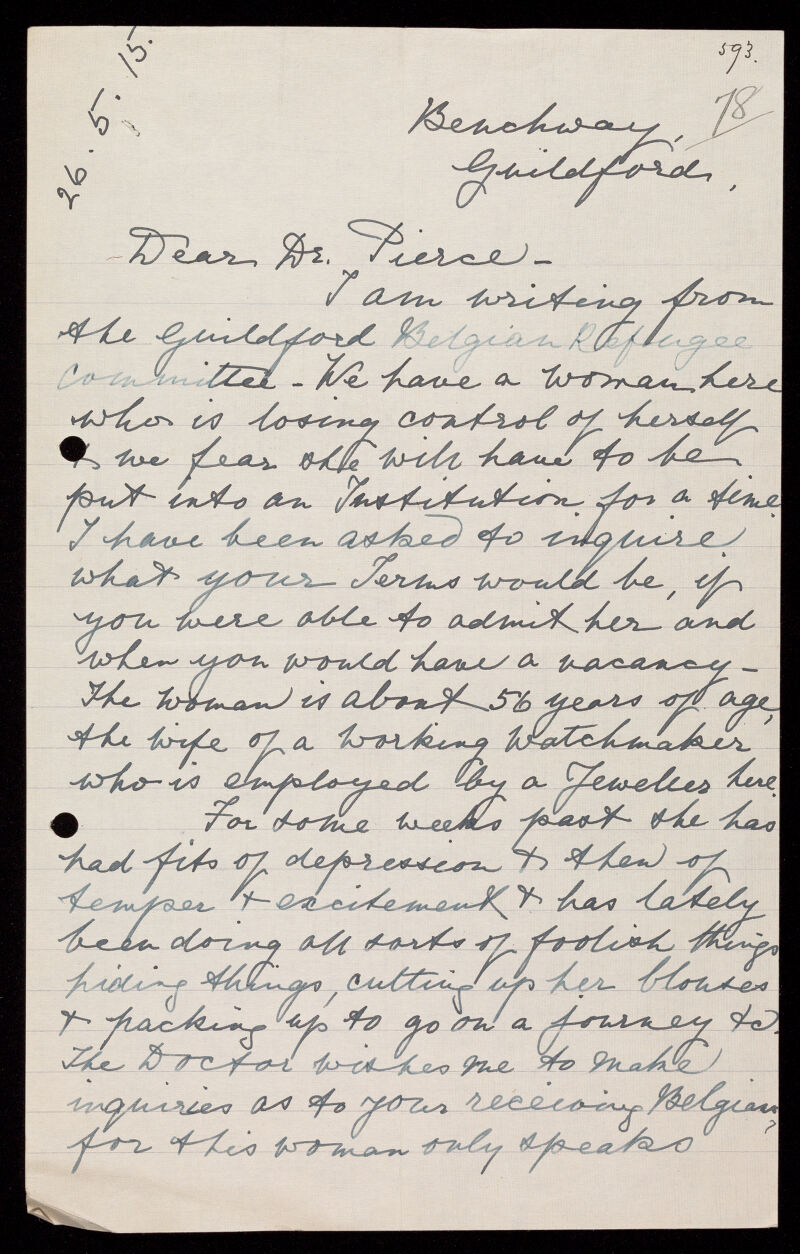 593.
78
26. 5. 15.
Benchway,
Guildford,
Dear Dr. Pierce -
I am writing from
the Guildford Belgian Refugee
Committee - We have a woman here
who is losing control of herself
& we fear she will have to be
put into an Institution for a time.
I have been asked to inquire
what your Terms would be, if
you were able to admit her and
when you would have a vacancy -
The woman is about 56 years of age,
the wife of a working watchmaker
who is employed by a Jeweller here.
For some weeks past she has
had fits of depression & then of
temper & excitement & has lately
been doing all sorts of foolish things
hiding things, cutting up her blouses
& packing up to go on a journey &c.
The Doctor wishes me to make
inquiries as to your receiving Belgians,
for this woman only speaks